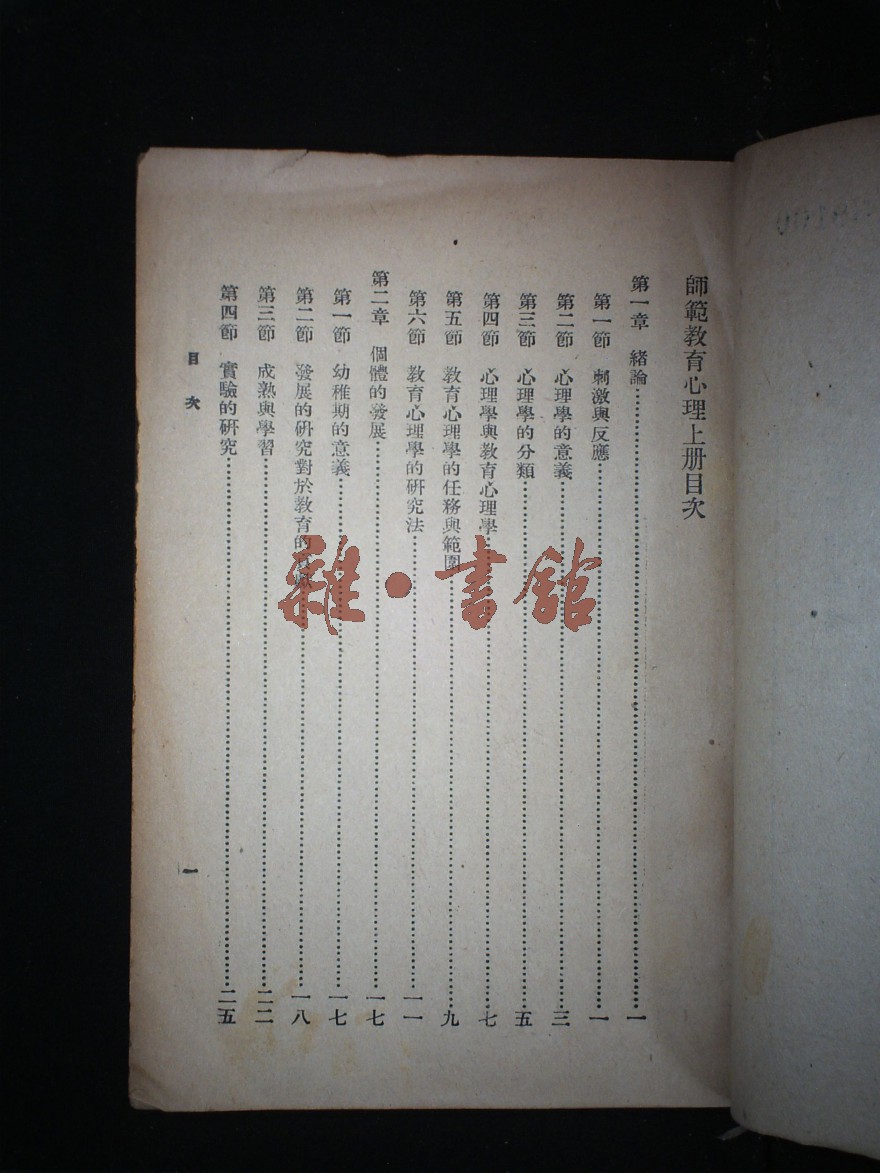 師範教育心理上册目次
第一章 緒論……一
第一節 刺激與反應……一
第二節 心理學的意義……三
第三節 心理學的分類……五
第四節 心理學與教育心理學……七
第五節 教育心理學的任務與範圍……九
第六節 教育心理學的研究法……一一
第二章 個體的發展……一七
第一節 幼稚期的意義……一七
第二節 發展的研究對於教育的……一八
第三節 成熟與學習……二二
第四節 實驗的研究……二五
目次
一
雜·書館